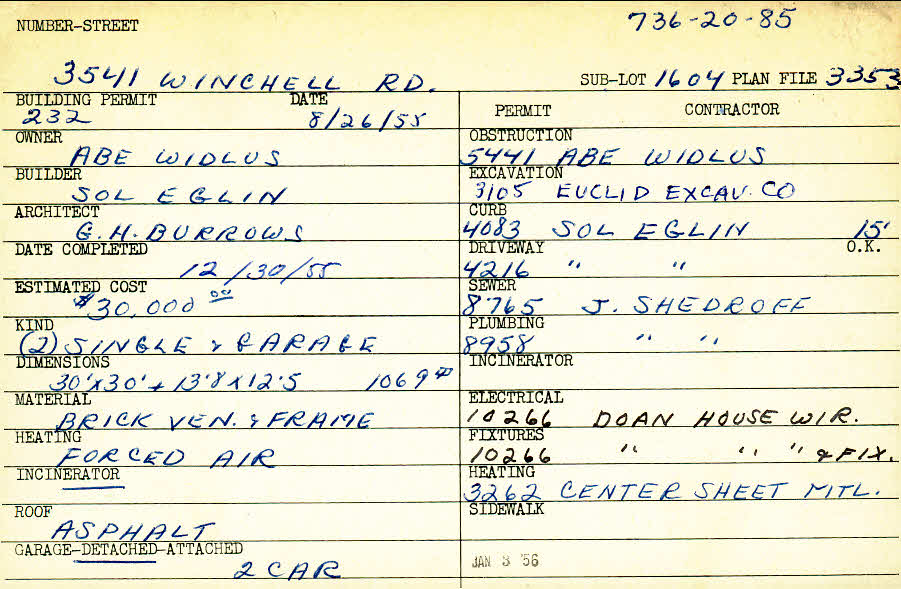 NUMBER-STREET 736-20-85
3541 WINCHELL RD. SUB-LOT 1604 PLAN FILE 3353
BUILDING PERMIT DATE
232 8/26/55
OWNER
ABE WIDLUS
BUILDER
SOL EGLIN
ARCHITECT
G.H. BURROWS
DATE COMPLETED
12/30/55
ESTIMATED COST
$30,000 00
KIND
(2) SINGLE & GARAGE
DIMENSIONS
30'X30' + 13'8 X 12'5 1069 #
MATERIAL
BRICK VEN. & FRAME
HEATING
FORCED AIR
INCINERATOR
ROOF
ASPHALT
GARAGE-DETACHED-ATTACHED
2 CAR
PERMIT CONTRACTOR
OBSTRUCTION
5441 ABE WIDLUS
EXCAVATION
3105 EUCLID EXCAV. CO
CURB
4083 SOL EGLIN 15'
DRIVEWAY O.K.
4216 " "
SEWER
8765 J. SHEDROFF
PLUMBING
8958 " "
INCINERATOR
ELECTRICAL
10266 DOAN HOUSE WIR.
FIXTURES
10266 " " " & FIX.
HEATING
3262 CENTER SHEET MTL.
SIDEWALK
JAN 3 '56